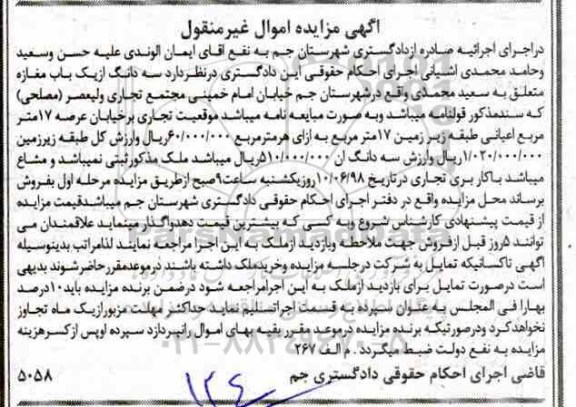 آگهی مزایده اموال غیرمنقول
دراجرای اجرائیه صادره ازدادگستری شهرستان جم به نفع آقای ایمان الوندی علیه حسن وسعید
وحامد محمدی اشیانی اجرای احکام حقوقی این دادگستری درنظردارد سه دانگ ازیک باب مغازه
متعلق به سعید محمدی واقع درشهرستان جم خیابان امام خمینی مجتمع تجاری ولیعصر (مصلحی)
که سندمذکور قولنامه میباشد وبه صورت مبایعه نامه میباشد موقعیت تجاری برخیابان عرصه ۱۷متر
مربع اعیانی طبقه زیر زمین ۱۷متر مربع به ازای هرمترمربع ۶۰/۰۰۰/۰۰۰ریال وارزش کل طبقه زیرزمین
۱/۰۲۰/۰۰۰/۰۰۰ریال وارزش سه دانگ آن ۵۱۰/۰۰۰/۰۰۰ریال میباشد ملک مذکورثبتی نمیباشد و مشاع
میباشد باکاربری تجاری درتاریخ ۱۰/۰۶/۹۸روزیکشنبه ساعت۹صبح ازطریق مزایده مرحله اول بفروش
برساند محل مزایده واقع در دفتر اجرای احکام حقوقی دادگستری شهرستان جم میباشدقیمت مزایده
از قیمت پیشنهادی کارشناس شروع وبه کسی که بیشترین قیمت دهدواگذار مینماید علاقمندان می
توانند ۵روز قبل ازفروش جهت ملاحظه وبازدید ازملک به این اجرا مراجعه نمایند لذامراتب بدینوسیله
آگهی تاکسانیکه تمایل به شرکت درجلسه مزایده وخریدملک داشته باشند درموعدمقررحاضرشوند بدیهی
است درصورت تمایل برای بازدید ازملک به این اجرامراجعه شود درضمن برنده مزایده باید۱۰درصد
بهارا فی المجلس به عنوان سپرده به قسمت اجراتسلیم نماید حداکثر مهلت مزبورازیک ماه تجاوز
نخواهدکرد ودرصورتیکه برنده مزایده درموعد مقرر بقیه بهای اموال رانپردازد سپرده اوپس ازکسرهزینه
مزایده به نفع دولت ضبط میگردد . م الف ۲۶۷
قاضی اجرای احکام حقوقی دادگستری جم
۵۰۵۸
۱۲۴